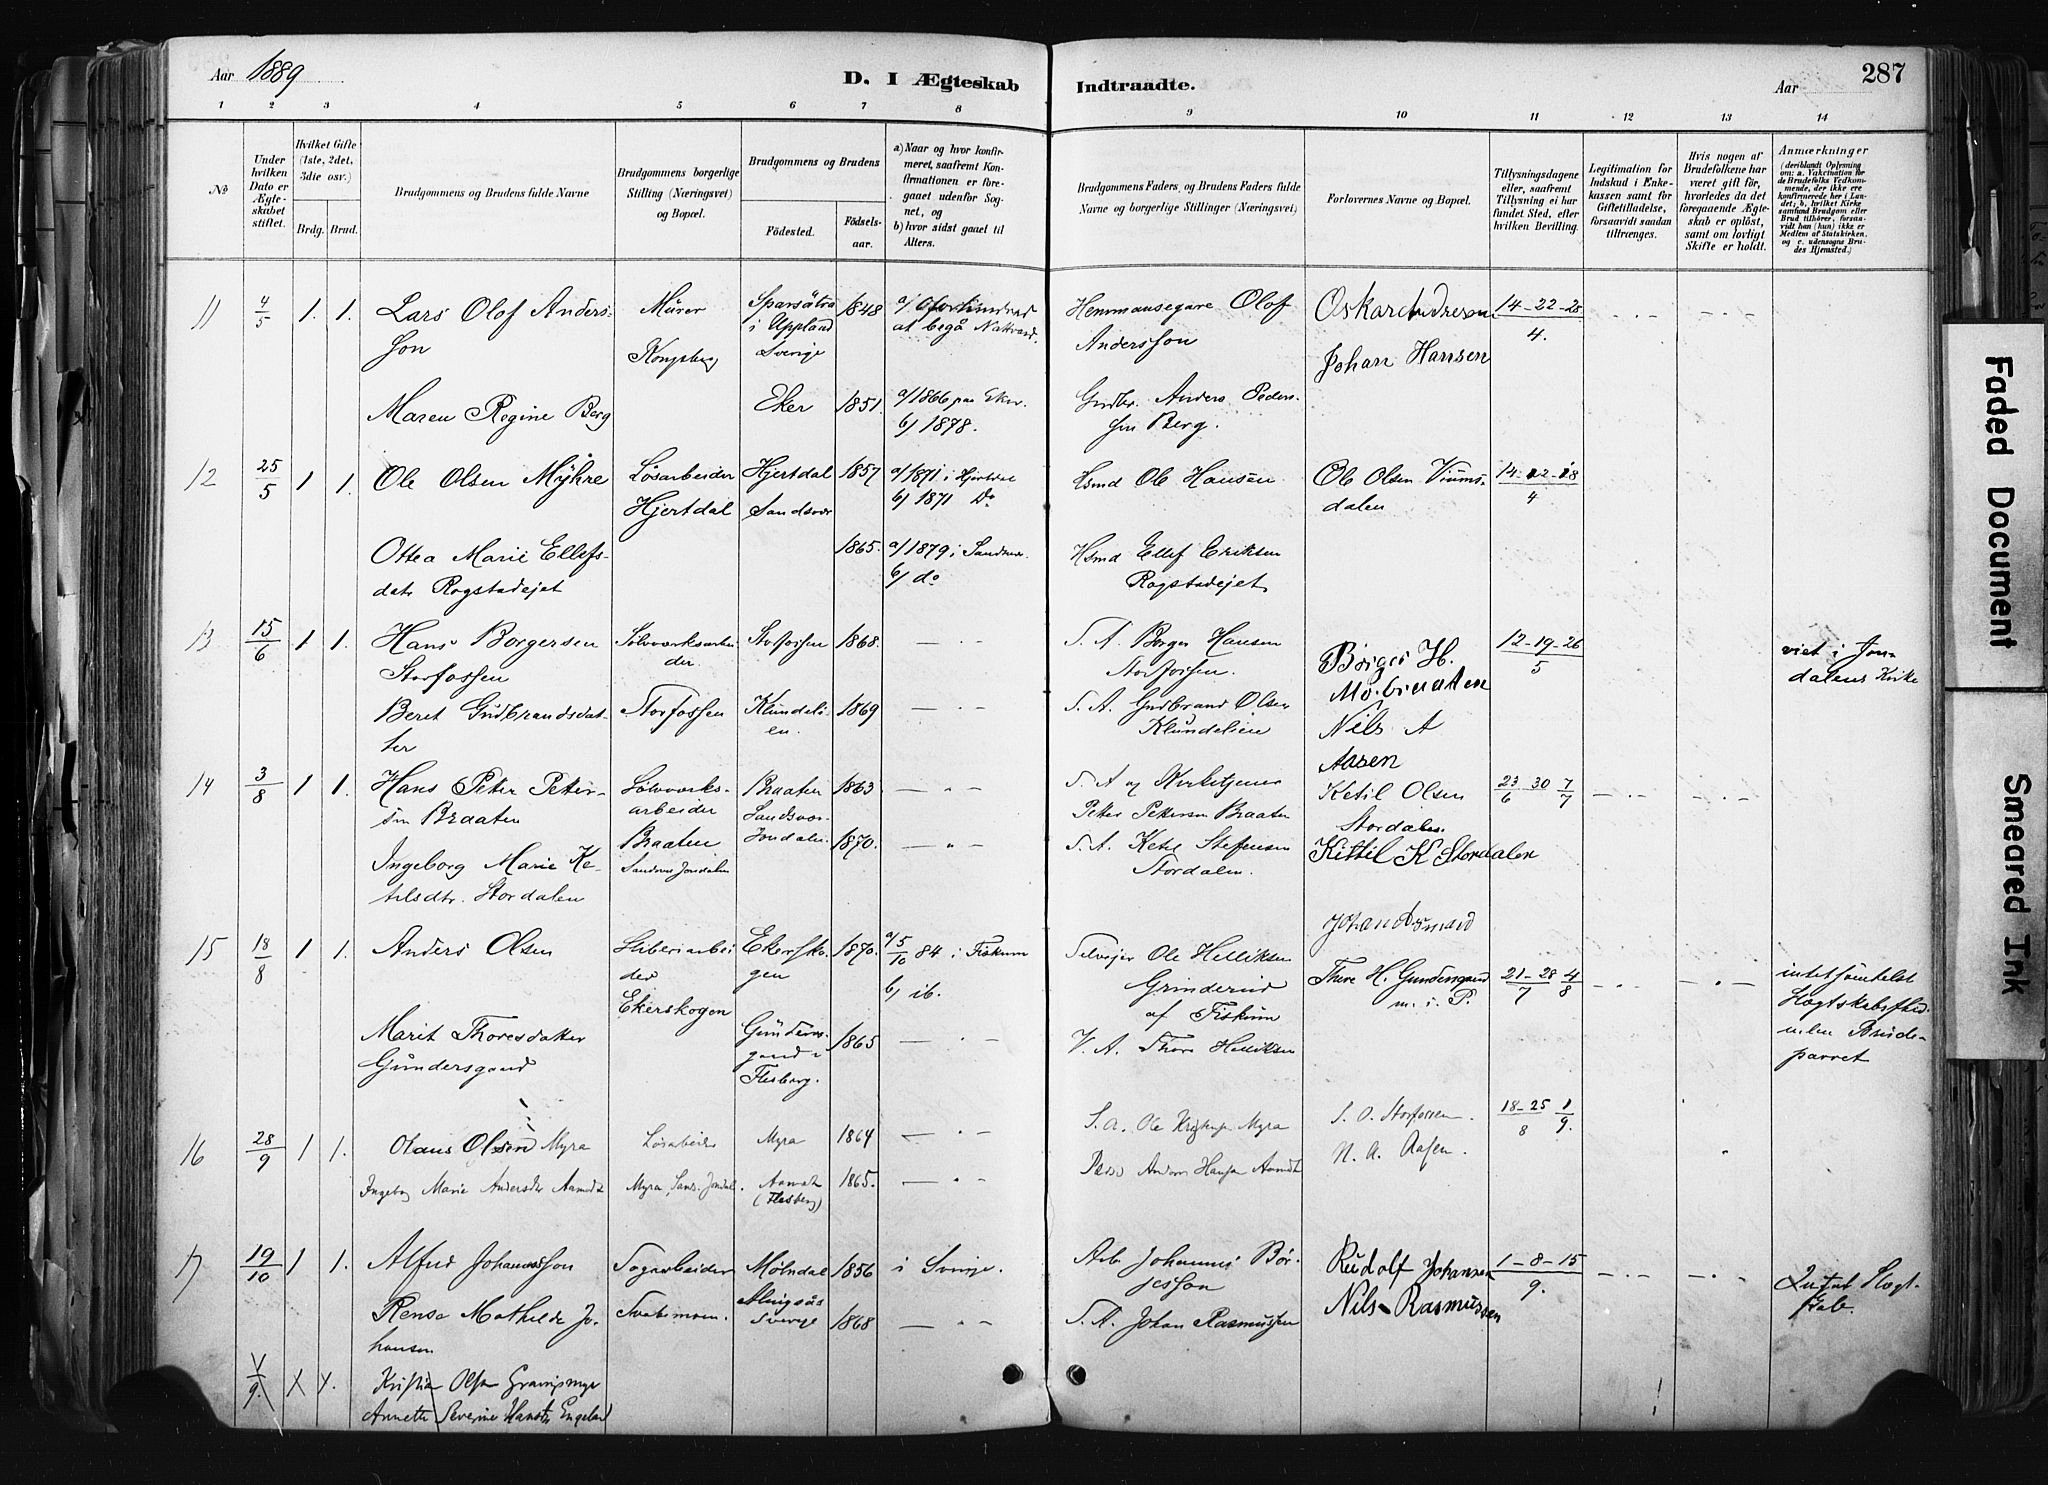 Aar 1889
D. I Ægteskab
Indtraadte.
Aar
287
1 2 3 4 5 6 7 8 9 10 11 12 13 14
No
Under hvilken Dato er Ægteskabet stiftet.
Hvilket Gifte (1ste, 2det, 3die osv.)
Brdg. Brud.
Brudgommens og Brudens fulde Navne
Brudgommens borgerlige Stilling (Næringsvei) og Bopæl.
Brudgommens og Brudens
Fødested.
Fødselsaar.
a) Naar og hvor konfirmeret, saafremt Konfirmationen er foregaaet udenfor Sognet, og
b) hvor sidst gaaet til Alters.
Brudgommens Faders og Brudens Faders fulde Navne og borgerlige Stillinger (Næringsvei)
Forlovernes Navne og Bopæl.
Tillysningsdagene eller, saafremt Tillysning ei har fundet Sted, efter hvilken Bevilling.
Legitimation for Indskud i Enkekassen samt for Giftetilladelse, forsaavidt saadan tiltrænges.
Hvis nogen af Brudefolkene har været gift før, hvorledes da det foregaaende Ægteskab er opløst, samt om lovligt Skifte er holdt.
Anmærkninger
(deriblandt Oplysning om: a. Vakcination for de Brudefolks Vedkommende, der ikke ere konfirmerede her i Landet; b. hvilket Kirkesamfund Brudgom eller Brud tilhører, forsaavidt han (hun) ikke er Medlem af Statskirken, og c. udensogns Brudes Hjemsted.)
11 4/5 1. 1. Lars Olof Andersson
Murer Kongsberg
Sparsätra i Uppland Sverige 1848
a/ Oforhindrad at begå Nattvard.
Hemmansegare Olof Andersson
Oskar Andresen
Johan Hansen
14-22-28/4.
Maren Regine Berg
Eker 1851.
a/ 1866 paa Eker.
b/ 1878.
Gudbr. Anders Pedersen Berg.
12 25/5 1 1. Ole Olsen Myhre
Løsarbeider Hjertdal
Hjertdal 1857
a/ 1871 i Hjertdal
b/ 1871 Do
Hsmd Ole Hansen
Ole Olsen Viumsdalen
14-22-28/4
Ottea Marie Ellefsdatr Rogstadejet
Sandsvær 1865.
a/ 1879 i Sandsvær
b/ do
Hsmd Ellef Eriksen Rogstadejet
13 15/6 1 1. Hans Borgersen Storfossen
Sølvværksarbeider.
Storfossen 1868.
S. A. Borger Hansen Storfossen.
Børger H. Mørbraaten
12-19-26/5
viet i Jondalens Kirke
Beret Gudbrandsdatter
Storfossen
Klundelien. 1869
S. A. Gudbrand Olsen Klundelien
Nils A Aasen
14 3/8 1 1. Hans Peter Petersen Braaten
Sølvværksarbeider Braaten
Sandsvær Jondalen
Braaten Sandsvær 1863
S. A. og Kirketjener Peter Petersen Braaten
Ketil Olsen Stordalen.
23/6 30 7/7
Ingeborg Marie Ketilsdtr. Stordalen
Jondalen 1870.
S. A. Ketil Stefensen Stordalen.
Kittil K Stordalen
15 18/8 1 1. Anders Olsen
Sliberiarbeider Ekerskogen
Ekerskogen 1870.
a/ 5/10 84 i Fiskum
b/ ib.
Selvejer Ole Helliksen Grinderud af Fiskum
Thore H. Gundersgaard m. i. P.
21-28/7 4/8
Marit Thoresdatter Gundersgaard
Gundersgaard i Flesberg. 1865
V. A. Thore Helliksen
16 28/9 1 1. Olaus Olsen Myra
Løsarbeider
Myra 1864
S. A. Ole Myra
S. O. Storfossen.
18-25/8 1/9.
Ingeborg Marie Andersdtr Aamodt
Myra, Sands. Jondal.
(Flesberg) 1865.
Anders Hansen Aamodt
N. A. Aasen.
17 19/10 1 1. Alfred Johansson
Sagarbeider
Mølndal 1856
i Sverige.
Arb. Johannes Börjesson
Rudolf Johansen
1-8-15/9.
Rensa Mathilde Johansen
Alingsås Sverige 1868
S. A. Johan Rasmussen
Nils Rasmussen
Kristian Olsen
Annette Severine
Faded Document
Smeared Ink